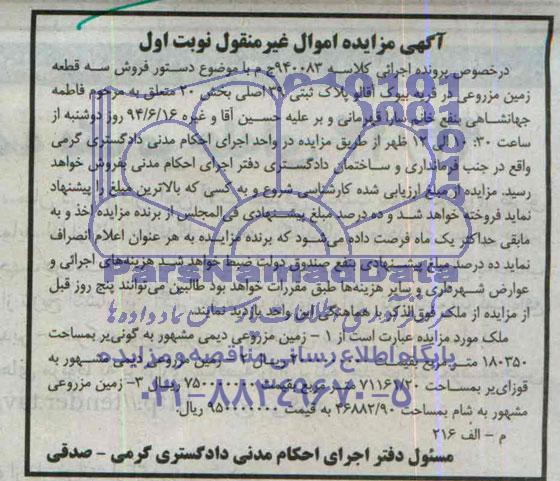 آگهی مزایده اموال غیرمنقول نوبت اول
درخصوص پرونده اجرائی کلاسه ۹۴۰۰۸۳ج م با موضوع دستور فروش سه قطعه
زمین مزروعی در قریه بیوک آقالو پلاک ثبتی ۳۹ اصلی بخش ۲۰ متعلق به مرحوم فاطمه
جهانشاهی بنفع خانم سارا قهرمانی و بر علیه حسین آقا و غیره ۹۴/۶/۱۶ روز دوشنبه از
ساعت ۱۰:۳۰ الی ۱۲ ظهر از طریق مزایده در واحد اجرای احکام مدنی دادگستری گرمی
واقع در جنب فرمانداری و ساختمان دادگستری دفتر اجرای احکام مدنی بفروش خواهد
رسید. مزایده از مبلغ ارزیابی شده کارشناسی شروع و به کسی که بالاترین مبلغ را پیشنهاد
نماید فروخته خواهد شد و ده درصد مبلغ پیشنهادی فی‌المجلس از برنده مزایده اخذ و به
مابقی حداکثر یک ماه فرصت داده می‌شود که برنده مزایده به هر عنوان اعلام انصراف
نماید ده درصد مبلغ پیشنهادی بنفع صندوق دولت ضبط خواهد شد هزینه‌های اجرائی و
عوارض شهرداری و سایر هزینه‌ها طبق مقررات خواهد بود طالبین می‌توانند پنج روز قبل
از مزایده از ملک فوق‌الذکر با هماهنگی این واحد بازدید نمایند.
ملک مورد مزایده عبارت است از ۱ - زمین مزروعی دیمی مشهور به گونی‌یر بمساحت
۱۸۰۳۵۰ متر مربع بقیمت ریال ۲- زمین مزروعی دیمی مشهور به
قوزای‌یر بمساحت ۷۱۱۶۱/۲۰ متر مربع بقیمت ریال ۳- زمین مزروعی
مشهور به شام بمساحت ۴۶۸۸۲/۹۰ به قیمت ریال.
م - الف ۲۱۶
مسئول دفتر اجرای احکام مدنی دادگستری گرمی - صدقی
ParsNamadData
پایگاه اطلاع رسانی مناقصه و مزایده
۰۲۱-۸۸۳۴۹۶۷۰-۵